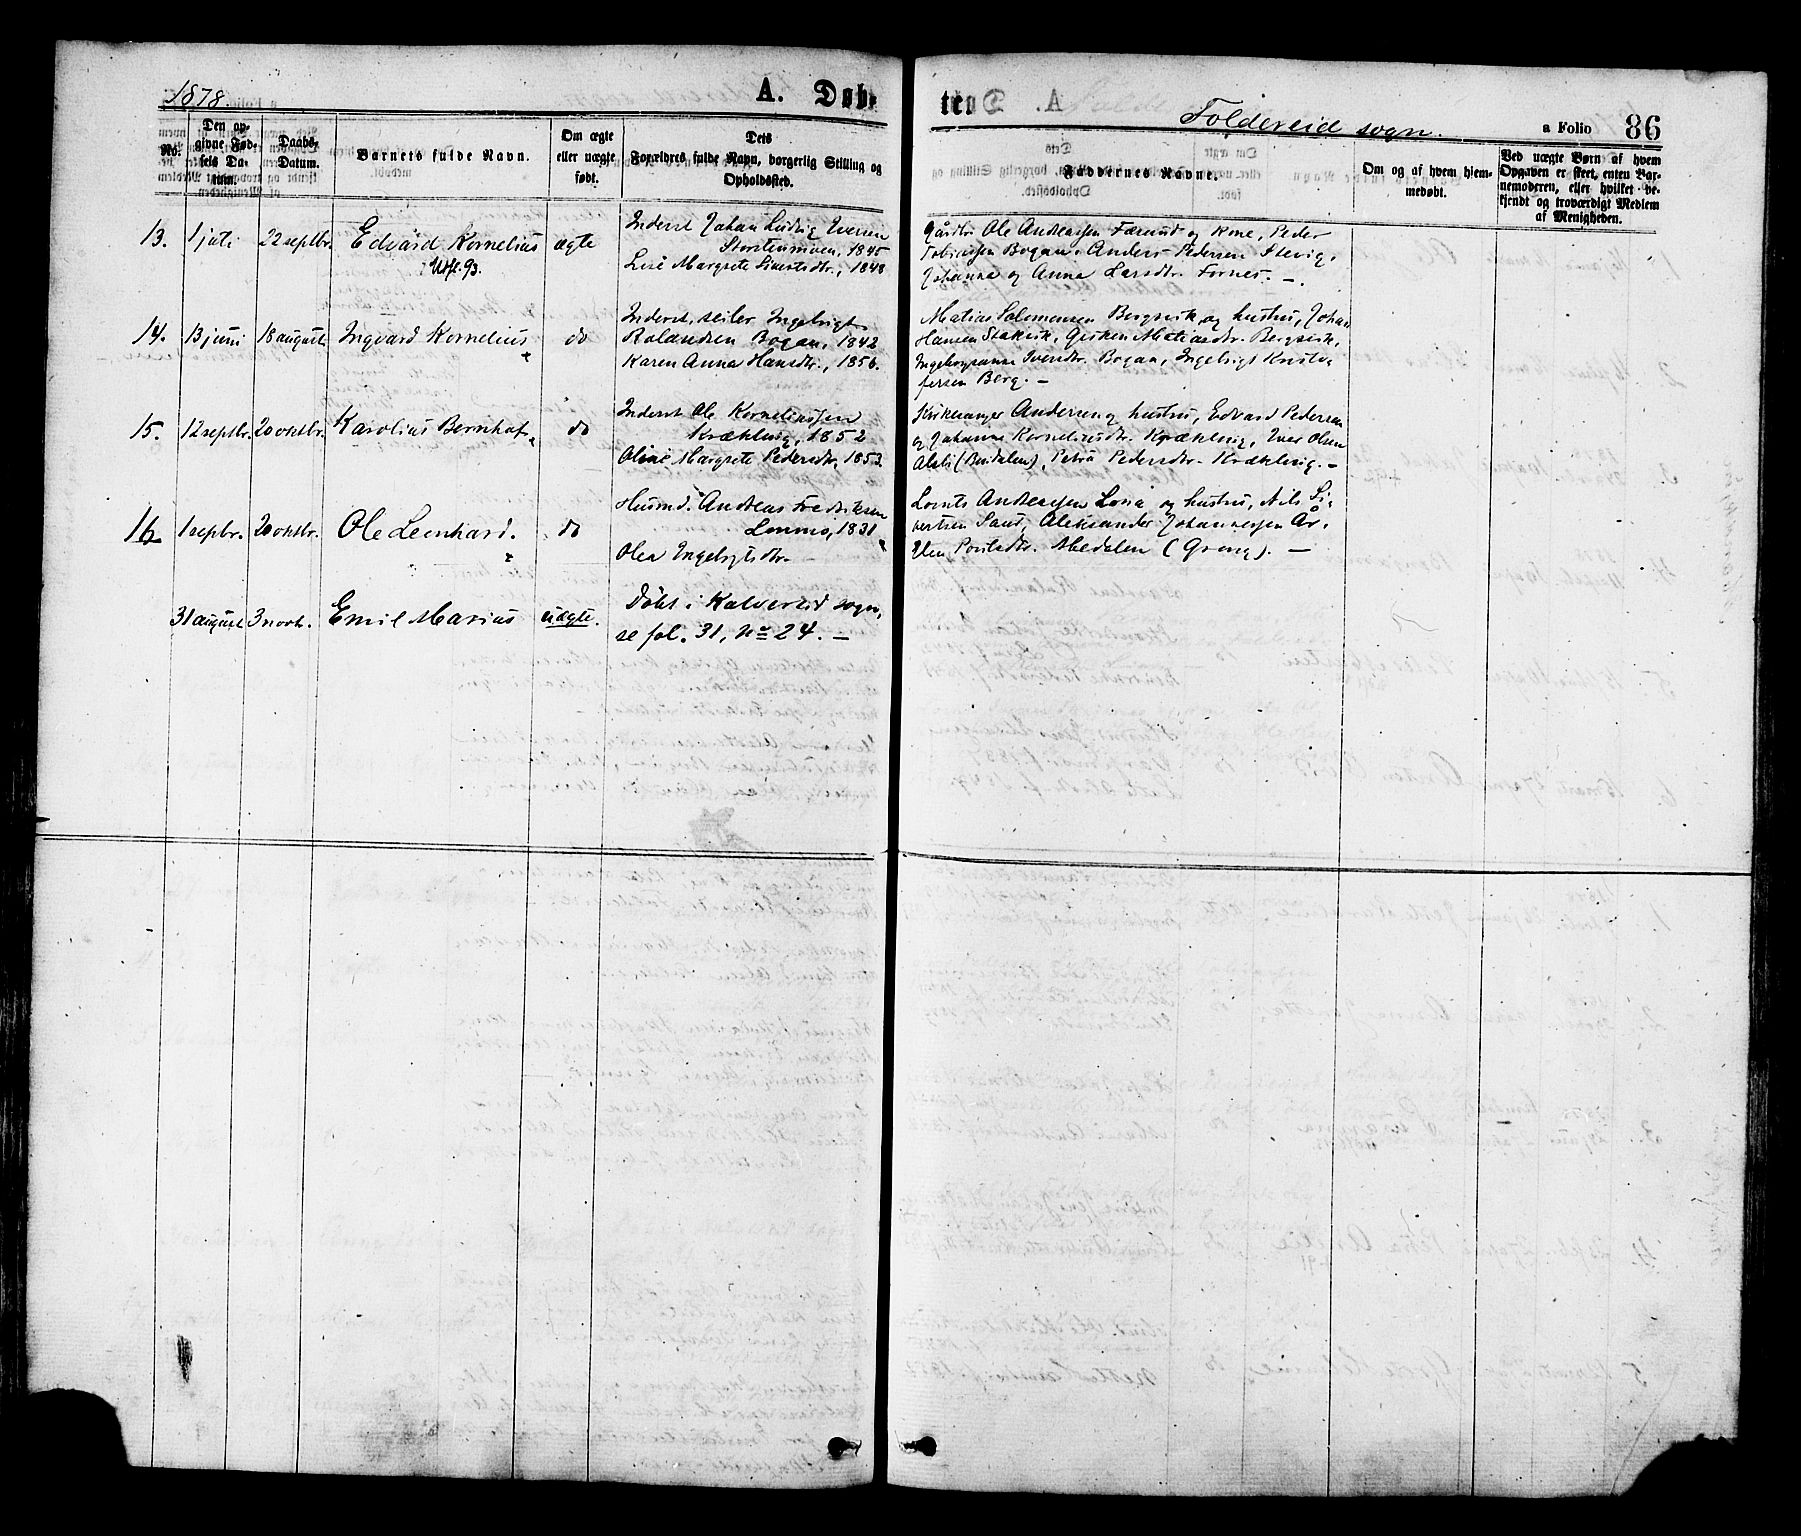 1878.
A. Døb-
ten
Foldereid sogn.
a Folio 86
No.
Den op-
givne Fød-
sels Da-
tum.
Daabs-
Datum.
Barnets fulde Navn.
Om ægte
eller uægte
født.
Dets
Forældres fulde Navn, borgerlig Stilling og
Opholdssted.
Faddernes Navne.
Om og af hvem hjem-
medøbt.
Ved uægte Børn af hvem
Opgaven er skeet, enten Bar-
nemoderen, eller hvilket be-
kjendt og troværdigt Medlem
af Menigheden.
13. 1 juli 22 septbr. Edvard Kornelius ægte
Utfl. 93.
Inderst Johan Ludvig Iversen
Storstenmoen, 1845
Lise Margrete Sivertsdtr., 1848
Gårdbr Ole Andreassen Færsund og kone, Peder
Tobiassen Bogan, Anders Pedersen Slevig,
Johanna og Anna Larsdtr. Fornes. —.
14. 13 juni 18 august. Ingvard Kornelius do
Inderst, seiler Ingebrigt
Rolandsen Bogan, 1842
Karen Anna Hansdtr., 1856.
Matias Salomonsen Bergsvik og hustru, Johan
Hansen Stakvik, Gjertine Matiasdtr. Bergsvik,
Ingeboranna Iversdtr. Bogan, Ingebrigt Kristo
fersen Berg. —
15. 12 septbr. 20 oktbr. Karolius Bernhof do
Inderst Ole Korneliussen
Kræklevig, 1852
Oline Margrete Pedersdtr., 1853.
Kirkesanger Andersen og hustru, Edvard Pedersen
og Johanna Kornelinsdtr. Kræklevig, Iver Olsen
Alsli (Bindalen), Petra Pedersdtr. Kræklevig. —
16 1 sepbr. 20 oktbr. Ole Leonhard. do
Husmd. Andreas Fredriksen
Lonmo, 1831
Olea Ingebrigtsdtr. —
Lornts Andreassen Lona og hustru, Nils Si-
vertsen Sand, Aleksander Johannessen År,
Elen Poulsdtr. Medalen (Grong). —
31 august 3 novb. Emil Marius uægte.
Døbt i Kolvereid sogn,
se fol. 31, No 24. —